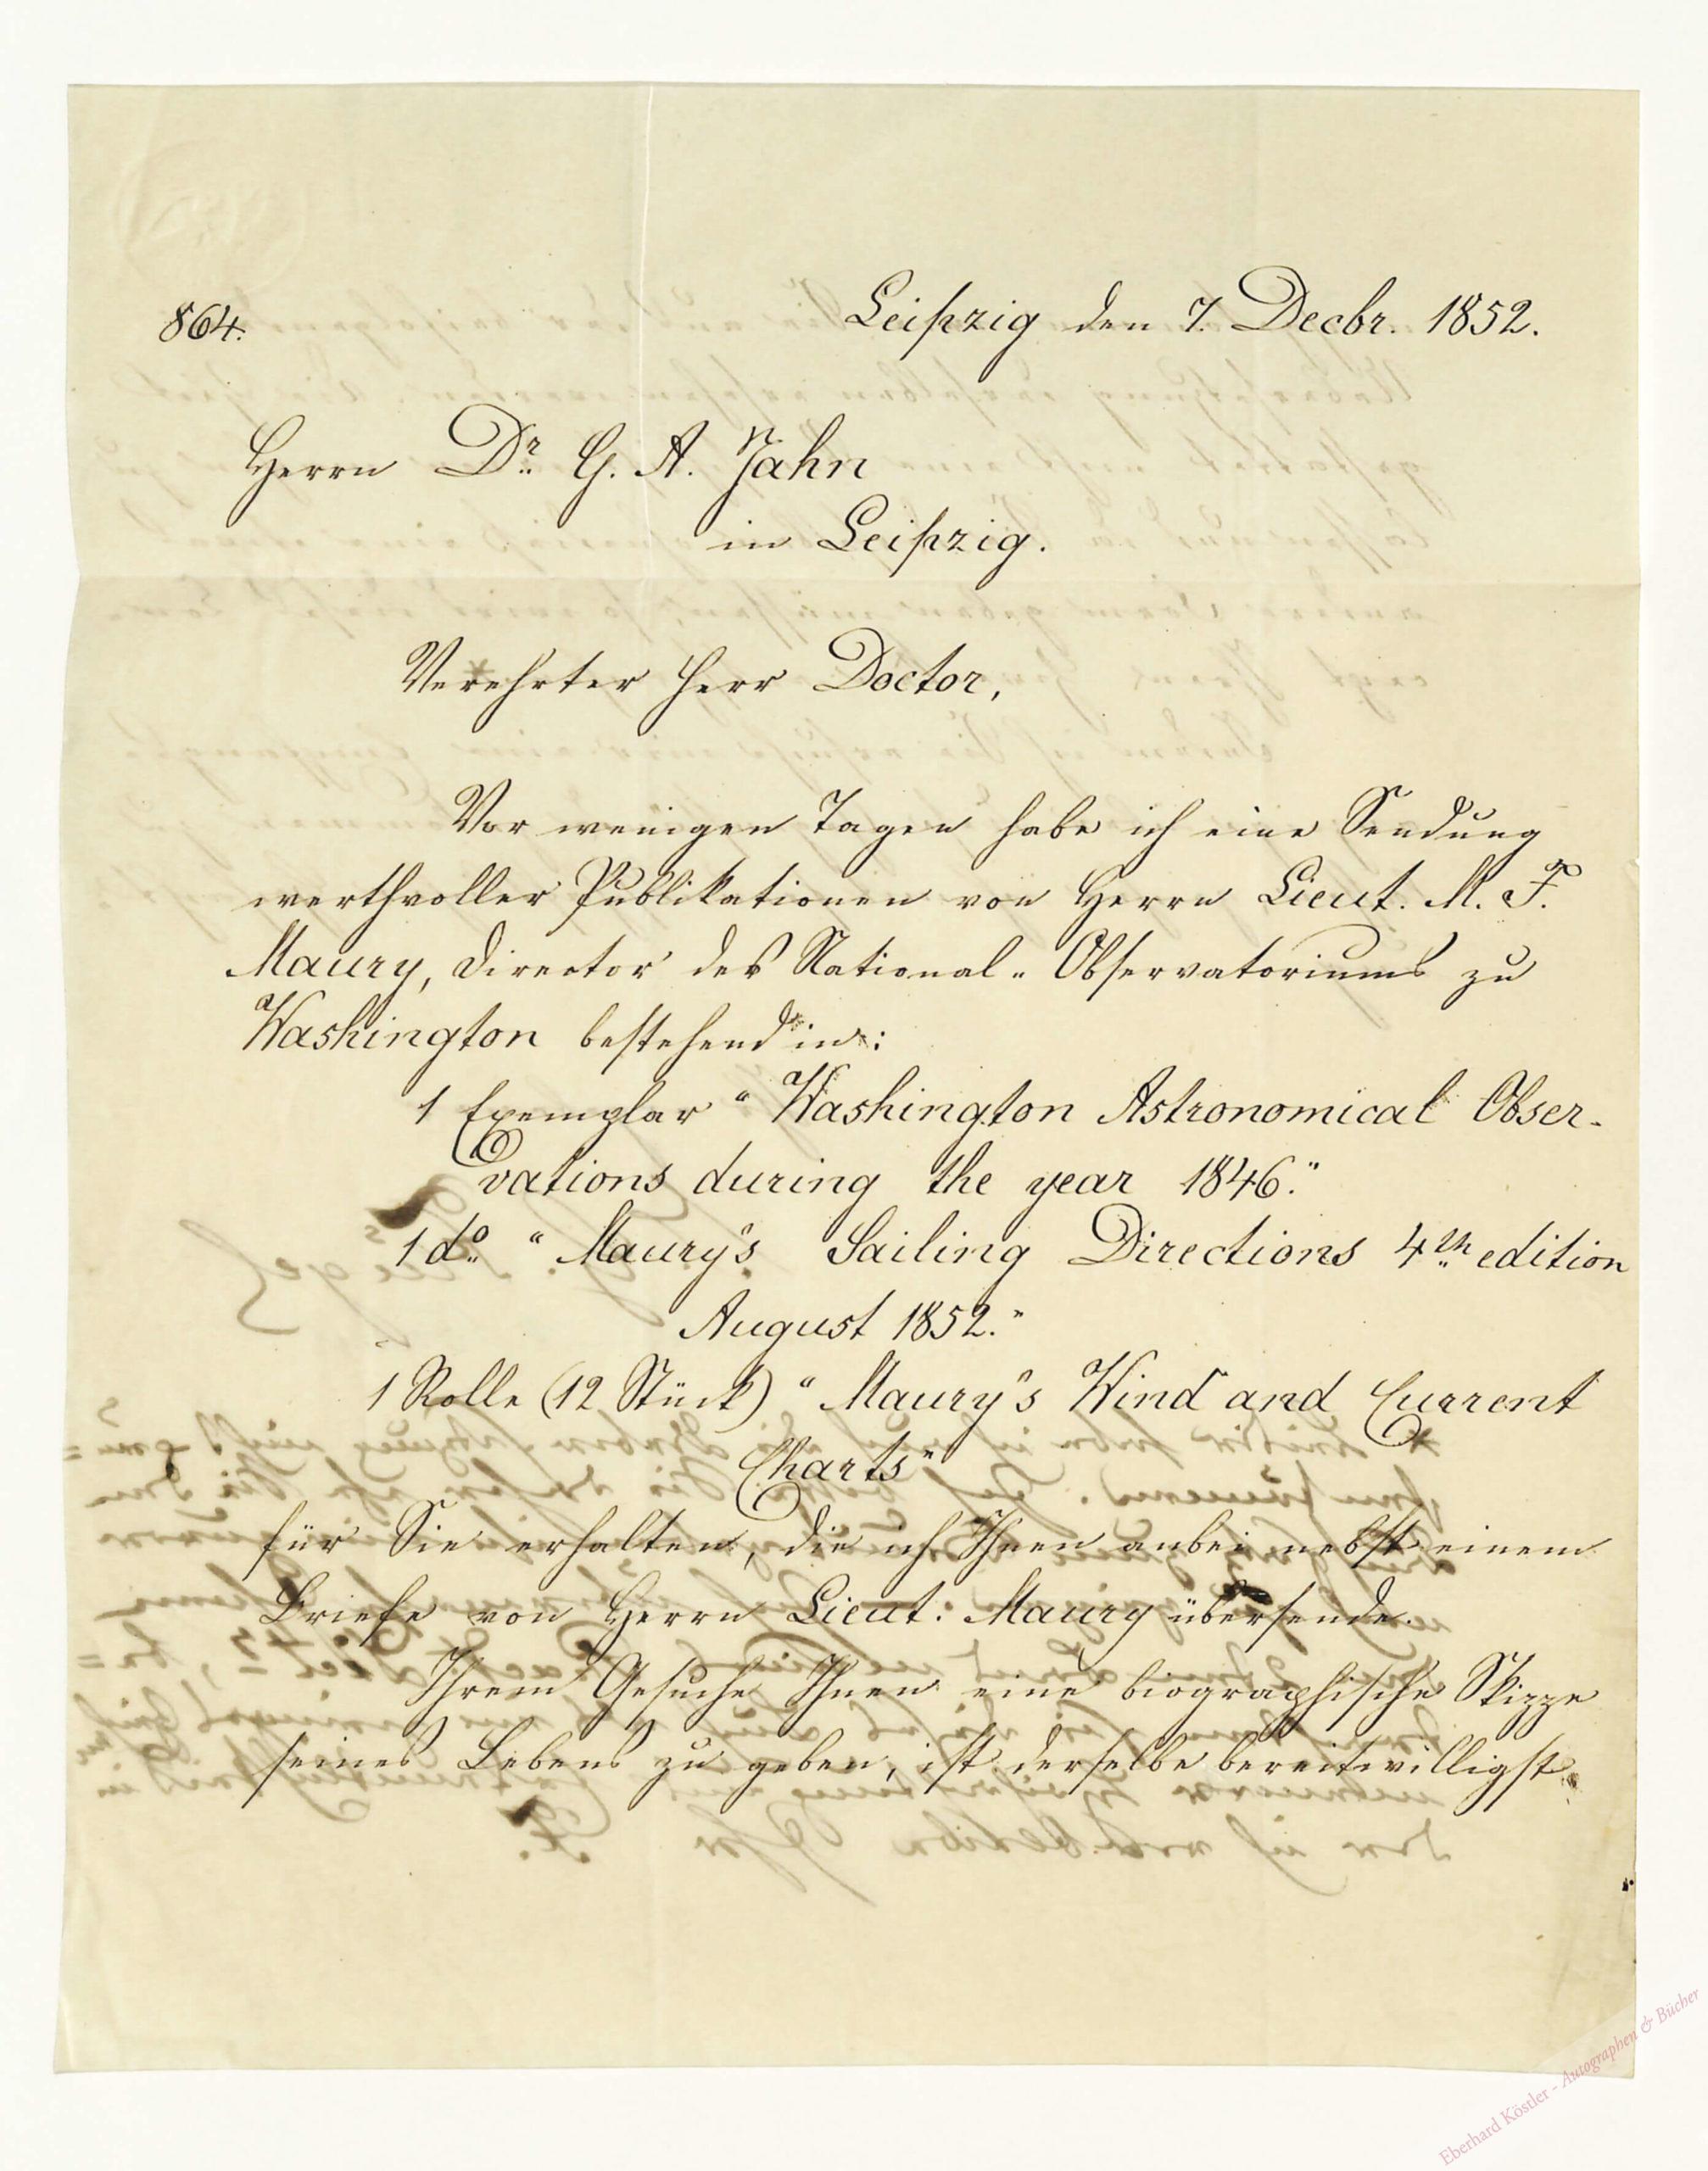 864.
Leipzig den 7. Decbr. 1852.
Herrn Dr. G. A. Jahn
in Leipzig.
Verehrter Herr Doctor,
Vor wenigen Tagen habe ich eine Sendung
werthvoller Publikationen von Herrn Lieut. M. F.
Maury, Director des National-Observatoriums zu
Washington bestehend in:
1 Exemplar "Washington Astronomical Obser-
vations during the year 1846."
1 do. "Maury's Sailing Directions 4th edition
August 1852."
1 Rolle (12 Stück) "Maury's Wind and Current
Charts"
für Sie erhalten, die ich Ihnen anbei nebst einem
Briefe von Herrn Lieut: Maury übersende.
Ihrem Gesuche Ihnen eine biographische Skizze
seines Lebens zu geben, ist derselbe bereitwilligst
Eberhard Köstler - Autographen & Bücher